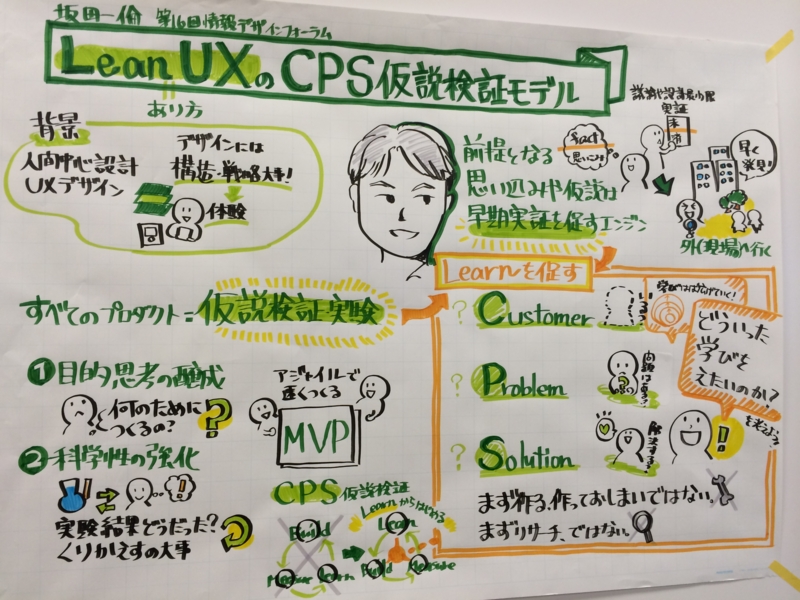 坂田一倫 第16回情報デザインフォーラム
Lean UXのCPS仮説検証モデル
あり方
背景
人間中心設計
UXデザイン
デザインには
構造・戦略も大事!
体験
前提となる
思い込みや仮説は
早期実証を促すエンジン
思いこみ
実証
早く
発見!
外(現場)へ行く
Learnを促す
すべてのプロダクト=仮説検証実験
? Customer
? Problem
? Solution
いるの?
問題はある?
解決する?
どういった
学びを
えたいのか?
を考えよう
!
まず作る、作っておしまいではない。
まずリサーチ、ではない。
1 目的思考の醸成
何のために
つくるの?
?
2 科学性の強化
実験結果どうだった?
くりかえすの大事
アジャイルで
速くつくる
MVP
CPS 仮説検証
Learnからはじめる
Build
Measure Learn
Learn
Build Measure